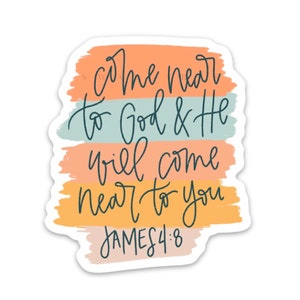 come near
to God & He
will come
near to you
JAMES 4:8